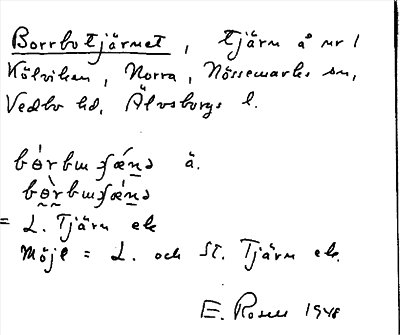 Borrbotjärnet, tjärn å nr 1
Kölviken, Norra, Nössemarks sn,
Vedbo hd, Älvsborgs l.
ä.
= L. Tjärn ek
Möjl = L. och St. Tjärn ek.
E. Rosell 1948